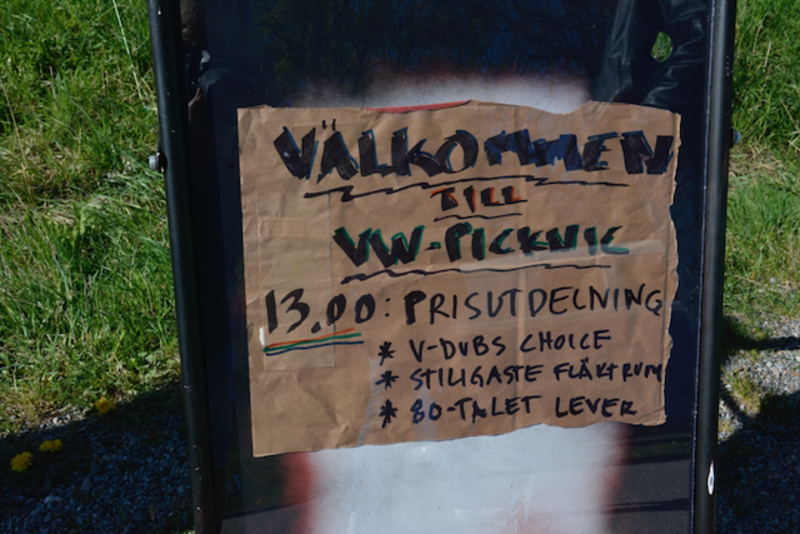 VÄLKOMMEN
TILL
VW-PICKNIC
13.00: PRISUTDELNING
* V-DUBS CHOICE
* STILIGASTE FLÄKTRUM
* 80-TALET LEVER